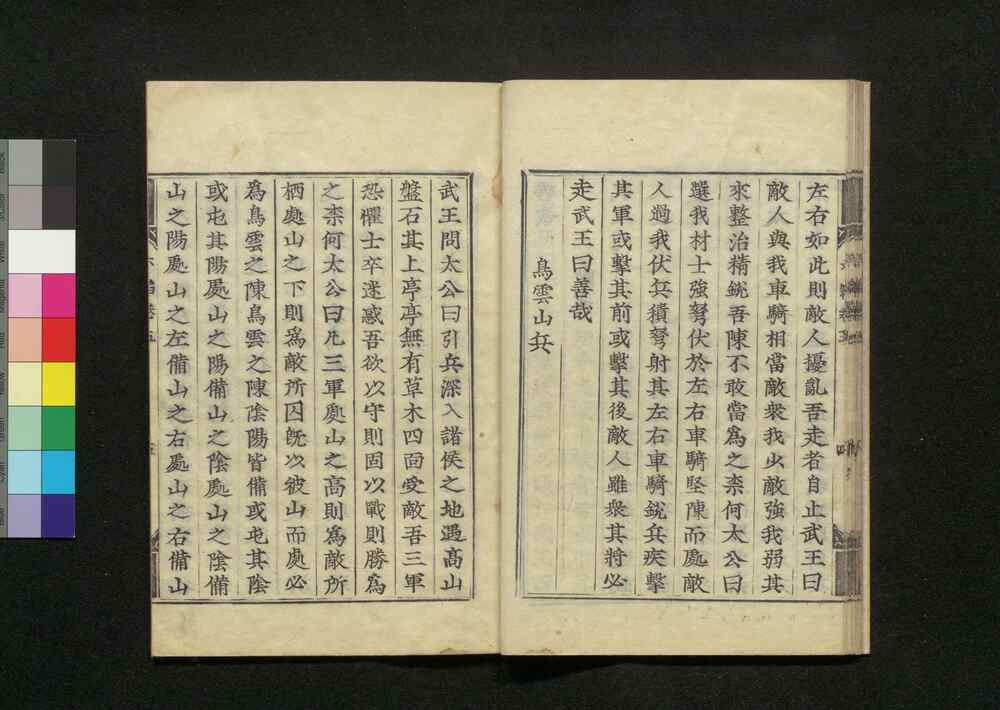 左右如此則敵人擾亂吾走者自止武王曰
敵人與我車騎相當敵衆我少敵強我弱其
來整治精銳吾陳不敢當爲之柰何太公曰
選我材士強弩伏於左右車騎堅陳而處敵
人過我伏兵積弩射其左右車騎銳兵疾擊
其軍或擊其前或擊其後敵人雖衆其將必
走武王曰善哉
鳥雲山兵
武王問太公曰引兵深入諸侯之地遇高山
盤石其上亭亭無有草木四面受敵吾三軍
恐懼士卒迷惑吾欲以守則固以戰則勝爲
之柰何太公曰凡三軍處山之高則爲敵所
栖處山之下則爲敵所囚旣以彼山而處必
爲鳥雲之陳鳥雲之陳陰陽皆備或屯其陰
或屯其陽處山之陽備山之陰處山之陰備
山之陽處山之左備山之右處山之右備山